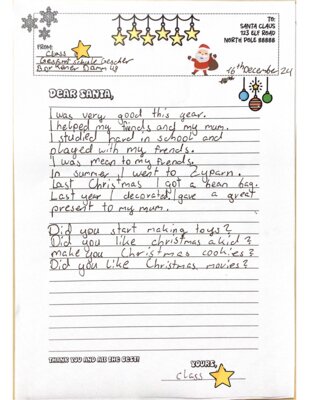 TO:
SANTA CLAUS
123 ELF ROAD
NORTH POLE 88888
FROM:
Class
Gesamtschule Gescher
Borkener Damm 48
16th December 24
DEAR SANTA,
I was very good this year.
I helped my friends and my mum.
I studied hard in school and
played with my frends.
I was mean to my frends.
In summer I went to Zyparn.
Last Christmas I got a bean bag.
Last year I decorated, gave a great
present to my mum.
Did you start making toys?
Did you like christmas a kid?
make you Christmas cookies?
Did you like Christmas movies?
THANK YOU AND THE BEST!
YOURS,
class